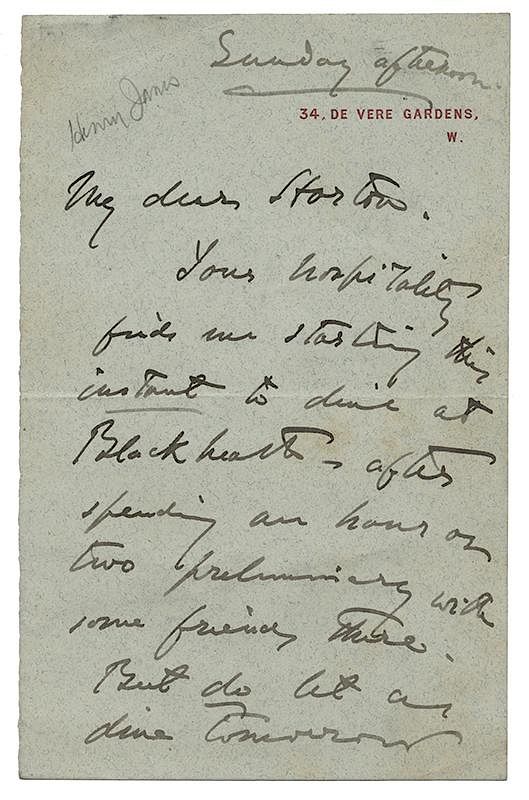 Sunday afternoon.
Henry James
34, DE VERE GARDENS,
W.
My dear
Your hospitality
finds me starting this
instant to dine at
Blackheath – after
spending an hour or
two preliminary with
some friends there.
But do let us
dine tomorrow